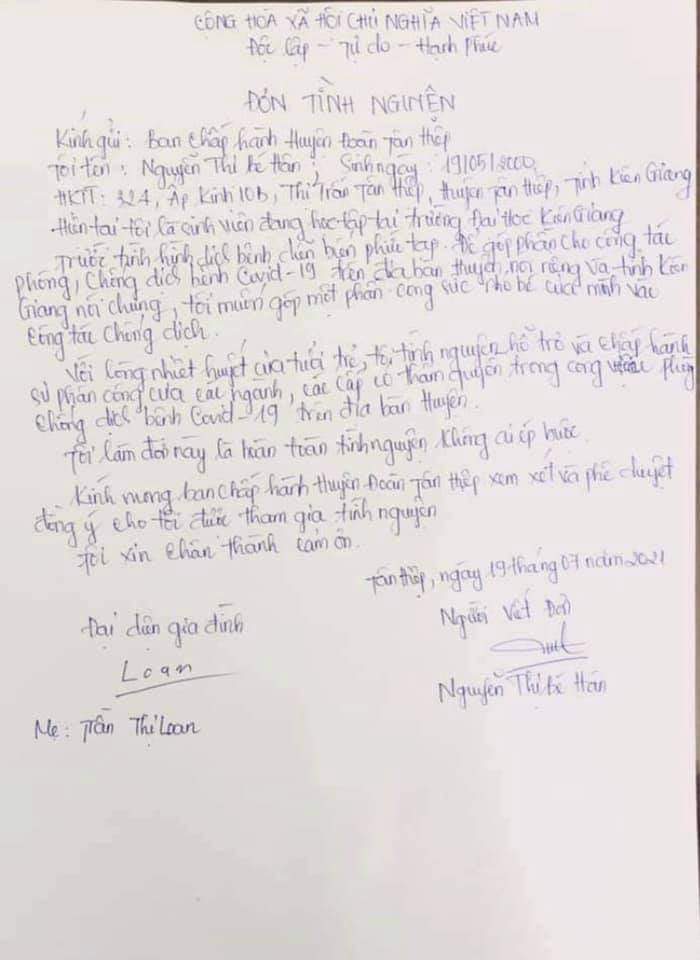 CỘNG HOÀ XÃ HỘI CHỦ NGHĨA VIỆT NAM
Độc lập - Tự do - Hạnh Phúc
ĐƠN TÌNH NGUYỆN
Kính gửi: Ban Chấp hành Huyện Đoàn Tân Hiệp
Tôi tên: Nguyễn Thị Bé Hân, Sinh ngày: 19/05/2000
HKTT: 324, Ấp Kinh 10B, Thị Trấn Tân Hiệp, Huyện Tân Hiệp, Tỉnh Kiên Giang
Hiện tại tôi là sinh viên đang học tập tại trường Đại Học Kiên Giang
Trước tình hình dịch bệnh diễn biến phức tạp. Để góp phần cho công tác
phòng, Chống dịch bệnh Covid-19 trên địa bàn Huyện nói riêng và tỉnh Kiên
Giang nói chung, tôi muốn góp một phần công sức nhỏ bé của mình vào
công tác chống dịch.
Với lòng nhiệt huyết của tuổi trẻ, tôi tình nguyện hỗ trợ và chấp hành
sự phân công của các ngành, các cấp có thẩm quyền trong công phòng
chống dịch bệnh Covid-19 trên địa bàn Huyện.
Tôi làm đơn này là hoàn toàn tình nguyện không ai ép buộc.
Kính mong ban Chấp hành Huyện Đoàn Tân Hiệp xem xét và phê duyệt
đồng ý cho tôi được tham gia tình nguyện
Tôi xin chân thành cảm ơn.
Tân Hiệp, ngày 19 tháng 07 năm 2021
Đại diện gia đình
Loan
Mẹ: Trần Thị Loan
Người Viết Đơn
Nguyễn Thị Bé Hân